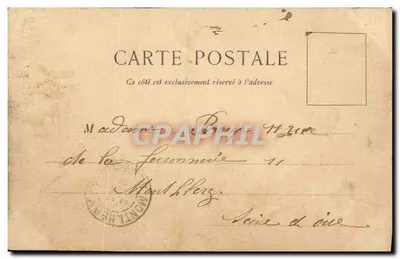 CARTE POSTALE
Ce côté est exclusivement réservé à l'adresse
Madame 11 rue
CPARAMA
de la 11
Montlhery
Seine et oise
MONTLHERY